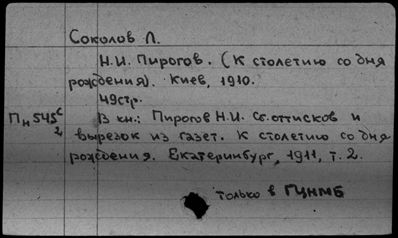 Соколов Л.
Н.И. Пирогов. (К столетию со дня
рождения). Киев, 1910.
49стр.
Пн 545с
2
В кн.: Пирогов Н.И. Сб. оттисков и
вырезок из газет. К столетию со дня
рождения. Екатеринбург, 1911, т. 2.
только в ГЦНМБ